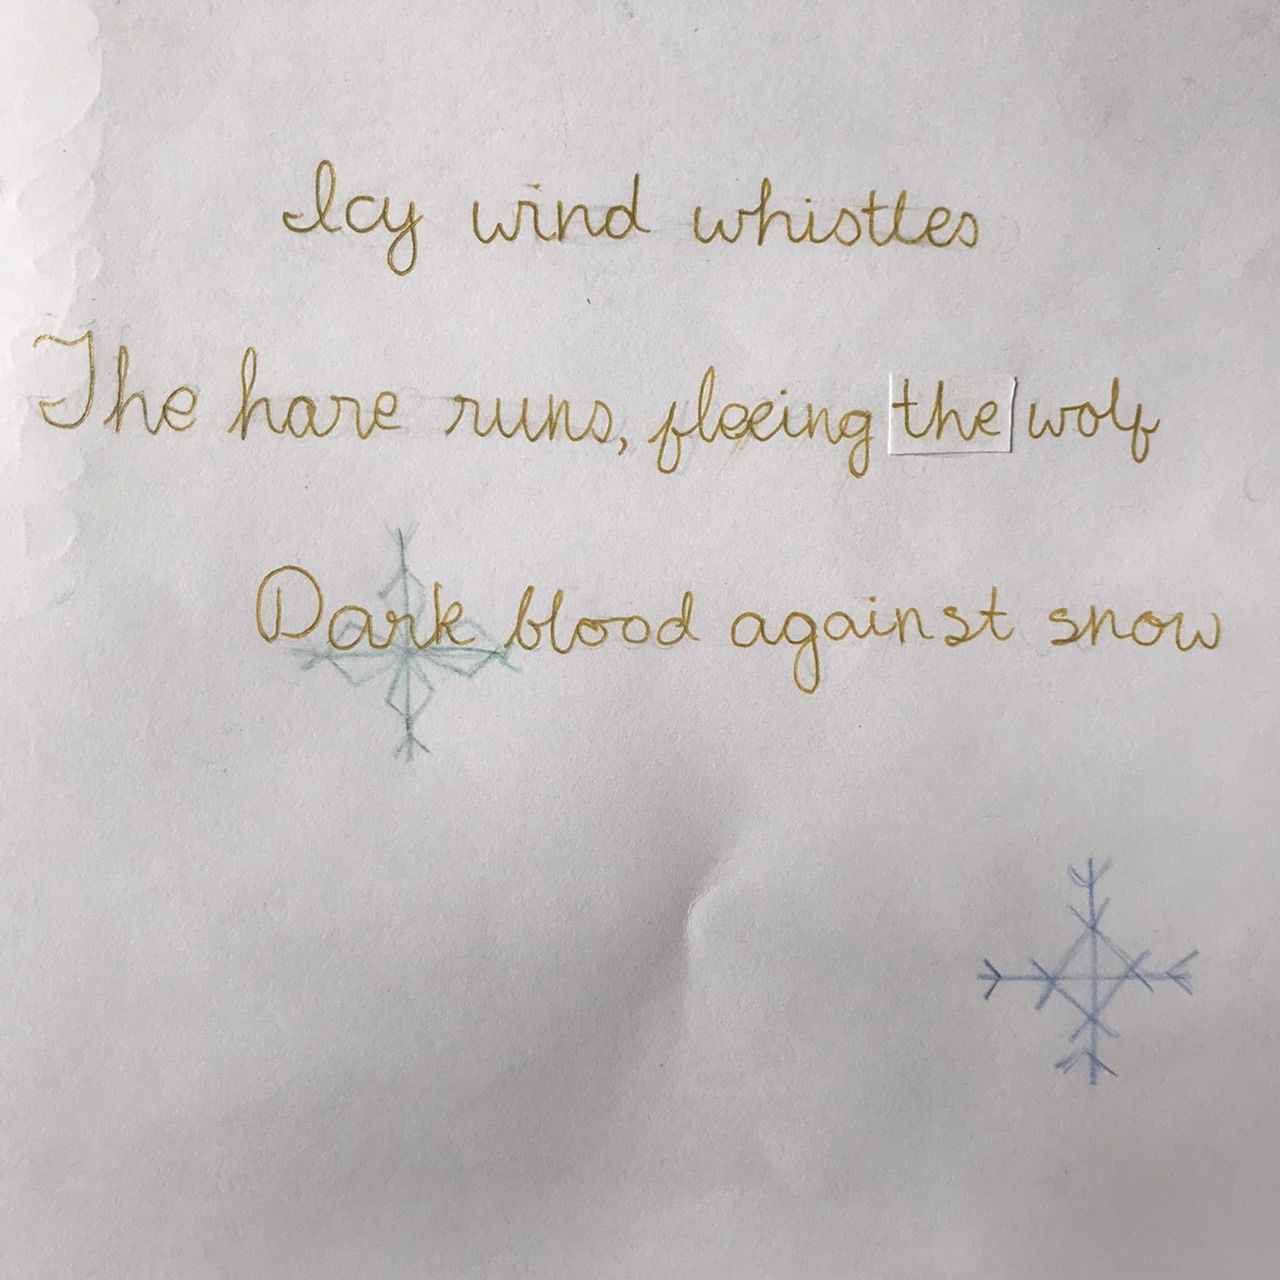 Icy wind whistles
The hare runs, fleeing the wolf
Dark blood against snow